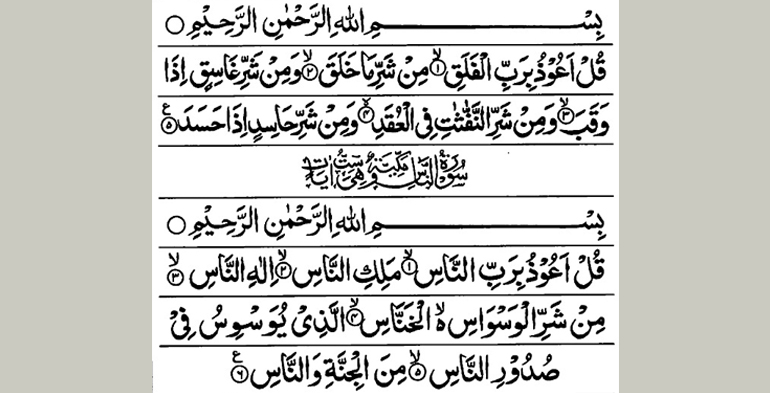 بِسْمِ اللهِ الرَّحْمٰنِ الرَّحِيْمِ ○
قُلْ اَعُوْذُ بِرَبِّ الْفَلَقِ ۙ﴿۱﴾ مِنْ شَرِّ مَا خَلَقَ ۙ﴿۲﴾ وَمِنْ شَرِّ غَاسِقٍ اِذَا
وَقَبَ ۙ﴿۳﴾ وَمِنْ شَرِّ النَّفّٰثٰتِ فِي الْعُقَدِ ۙ﴿۴﴾ وَمِنْ شَرِّ حَاسِدٍ اِذَا حَسَدَ ﴿۵﴾ ع
سُوْرَةُ النَّاسِ مَكِّيَّةٌ وَّهِيَ سِتُّ اٰيَاتٍ
بِسْمِ اللهِ الرَّحْمٰنِ الرَّحِيْمِ ○
قُلْ اَعُوْذُ بِرَبِّ النَّاسِ ۙ﴿۱﴾ مَلِكِ النَّاسِ ۙ﴿۲﴾ اِلٰهِ النَّاسِ ۙ﴿۳﴾
مِنْ شَرِّ الْوَسْوَاسِ ۙ۵ الْخَنَّاسِ ۙ﴿۴﴾ الَّذِيْ يُوَسْوِسُ فِيْ
صُدُوْرِ النَّاسِ ۙ﴿۵﴾ مِنَ الْجِنَّةِ وَالنَّاسِ ﴿۶﴾ ع